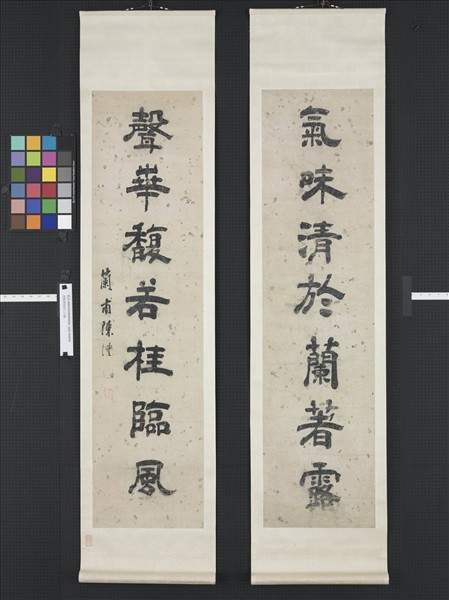 氣味清於蘭著露
聲華馥若桂臨風
蘭甫陳澧